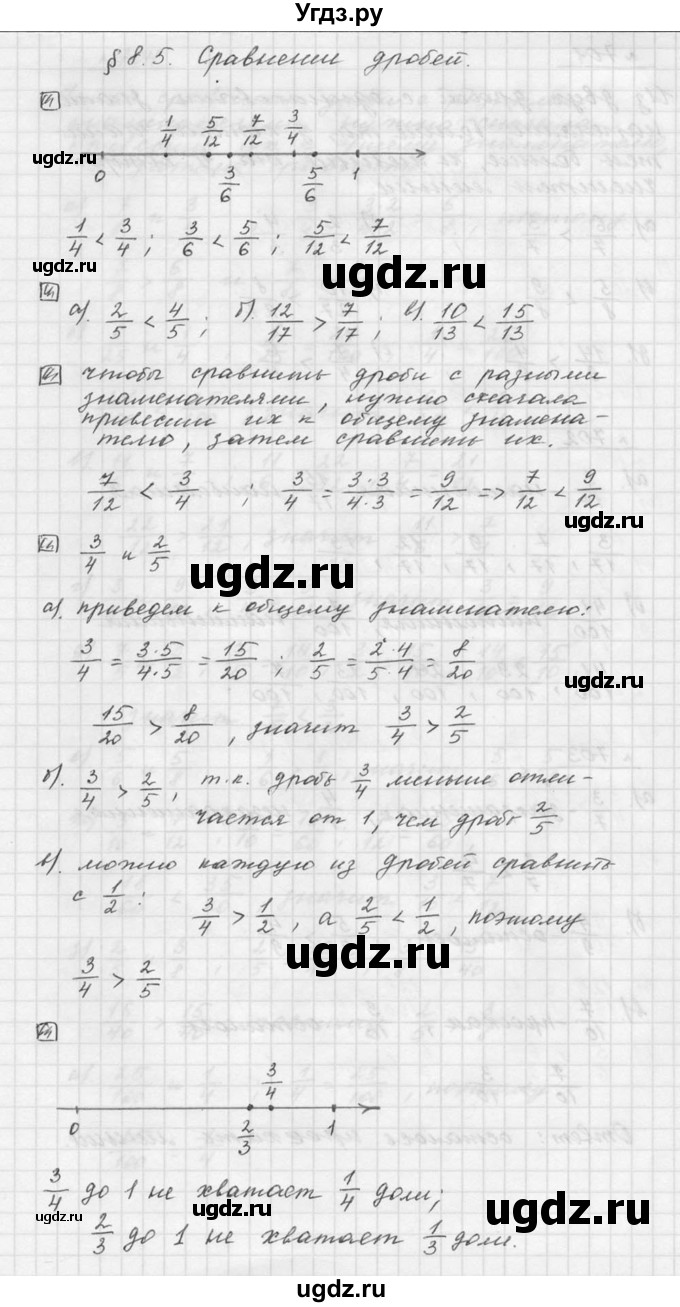 Угдз.ру
§ 8.5. Сравнении дробей.
1/4 5/12 7/12 3/4
0 3/6 5/6 1
ugdz.ru
1/4 < 3/4 ; 3/6 < 5/6 ; 5/12 < 7/12
ugdz.ru ugdz.ru
а). 2/5 < 4/5 ; б). 12/17 > 7/17 ; в). 10/13 < 15/13
чтобы сравнить дроби с разными
знаменателями, нужно сначала
привести их к общему знамена-
телю, затем сравнить их.
7/12 < 3/4 ; 3/4 = 3·3/4·3 = 9/12 => 7/12 < 9/12
ugdz.ru
3/4 и 2/5
ugdz.ru
а). приведем к общему знаменателю:
3/4 = 3·5/4·5 = 15/20 ; 2/5 = 2·4/5·4 = 8/20
ugdz.ru
15/20 > 8/20 , значит 3/4 > 2/5
б). 3/4 > 2/5 , т.к. дробь 3/4 меньше отли-
чается от 1, чем дробь 2/5
в). можно каждую из дробей сравнить
с 1/2 : 3/4 > 1/2 , а 2/5 < 1/2 , поэтому
ugdz.ru
3/4 > 2/5
3/4
0 2/3 1
3/4 до 1 не хватает 1/4 доли;
ugdz.ru ugdz.ru
2/3 до 1 не хватает 1/3 доли.
ugdz.ru